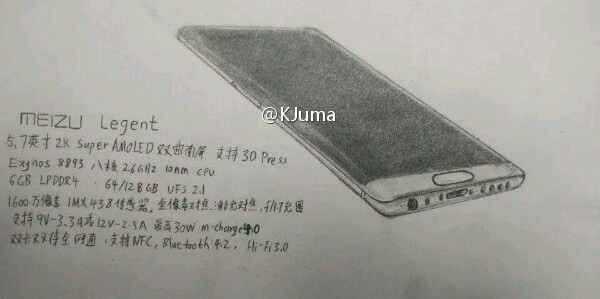 @KJuma
MEIZU Legent
5.7英寸 2K Super AMOLED 双曲面屏 支持3D Press
Exynos 8893 八核 2.6GHz 10nm CPU
6GB LPDDR4 · 64/128GB UFS 2.1
1600万像素 IMX438传感器. 全像素对焦.激光对焦, f/1.7光圈
支持9V-3.3A或12V-2.5A 最高30W m-charge4.0
双卡双待全网通, 支持NFC, Bluetooth 4.2, Hi-Fi 3.0